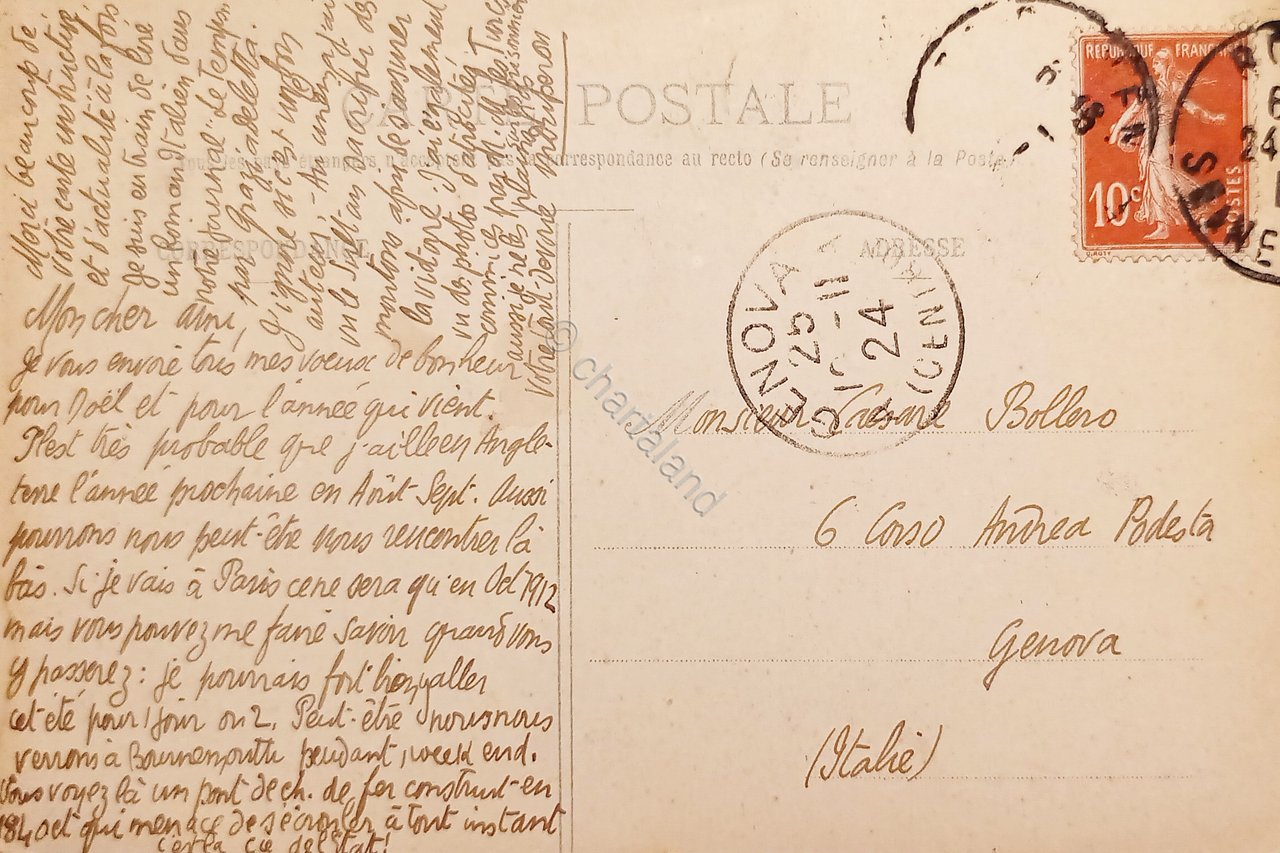 CARTE POSTALE
Tous les pays étrangers n'acceptent pas la correspondance au recto (Se renseigner à la Poste).
CORRESPONDANCE
ADRESSE
Mon cher ami,
Je vous envoie tous mes voeux de bonheur
pour Noël et pour l'année qui vient.
Il est très probable que j'aille en Angle-
terre l'année prochaine en Août-Sept. Aussi
pourrons nous peut-être nous rencontrer là
bas. Si je vais à Paris ce ne sera qu'en Oct 1912
mais vous pouvez me faire savoir quand vous
y passerez : je pourrais fort bien y aller
cet été pour 1 jour ou 2. Peut-être nous nous
verrons à Bournemouth pendant 1 week end.
Vous voyez là un pont de ch. de fer construit en
184 et qui menace de s'écrouler à tout instant
c'est la Cie de l'Etat!
Merci beaucoup de
votre carte instructive
et d'actualité à la fois
Je suis en train de lire
un roman italien dans
notre
par Grazia deledda.
J'ignore si c'est un bon
auteur
la victoire. J'ai également
vu des photos d'atrocités
commises par les Turcs
aussi je les plains
votre tout dévoué
Monsieur Caesare Bollero
6 Corso Andrea Podesta
Genova
(Italie)
REPUBLIQUE FRANÇAISE
10c
POSTES
O. ROTY
GENOVA
25
24
24
© chartaland